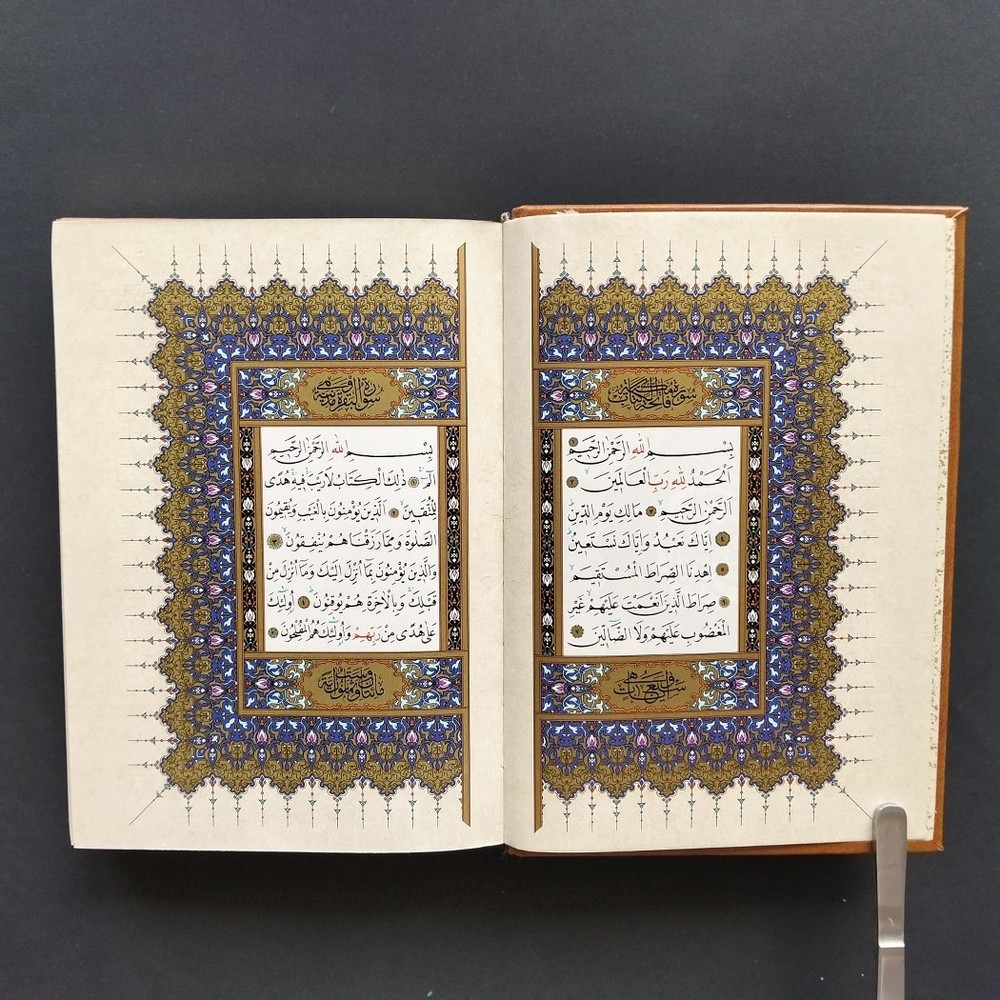 سورة فاتحة الكتاب
بِسْمِ اللهِ الرَّحْمٰنِ الرَّحِيمِ ١
اَلْحَمْدُ لِلّٰهِ رَبِّ الْعَالَمِينَ ٢
اَلرَّحْمٰنِ الرَّحِيمِ ٣ مَالِكِ يَوْمِ الدِّينِ
٤ اِيَّاكَ نَعْبُدُ وَاِيَّاكَ نَسْتَعِينُ
٥ اِهْدِنَا الصِّرَاطَ الْمُسْتَقِيمَ
٦ صِرَاطَ الَّذِينَ اَنْعَمْتَ عَلَيْهِمْ غَيْرِ
الْمَغْضُوبِ عَلَيْهِمْ وَلَا الضَّالِّينَ ٧
وهي سبع آيات
سورة البقرة مدنية
بِسْمِ اللهِ الرَّحْمٰنِ الرَّحِيمِ
الٓمٓ ١ ذٰلِكَ الْكِتَابُ لَا رَيْبَ فِيهِ هُدًى
لِلْمُتَّقِينَ ٢ اَلَّذِينَ يُؤْمِنُونَ بِالْغَيْبِ وَيُقِيمُونَ
الصَّلٰوةَ وَمِمَّا رَزَقْنَاهُمْ يُنْفِقُونَ ٣
وَالَّذِينَ يُؤْمِنُونَ بِمَٓا اُنْزِلَ اِلَيْكَ وَمَٓا اُنْزِلَ مِنْ
قَبْلِكَ وَبِالْاٰخِرَةِ هُمْ يُوقِنُونَ ٤ اُولٰٓئِكَ
عَلٰى هُدًى مِنْ رَبِّهِمْ وَاُولٰٓئِكَ هُمُ الْمُفْلِحُونَ ٥